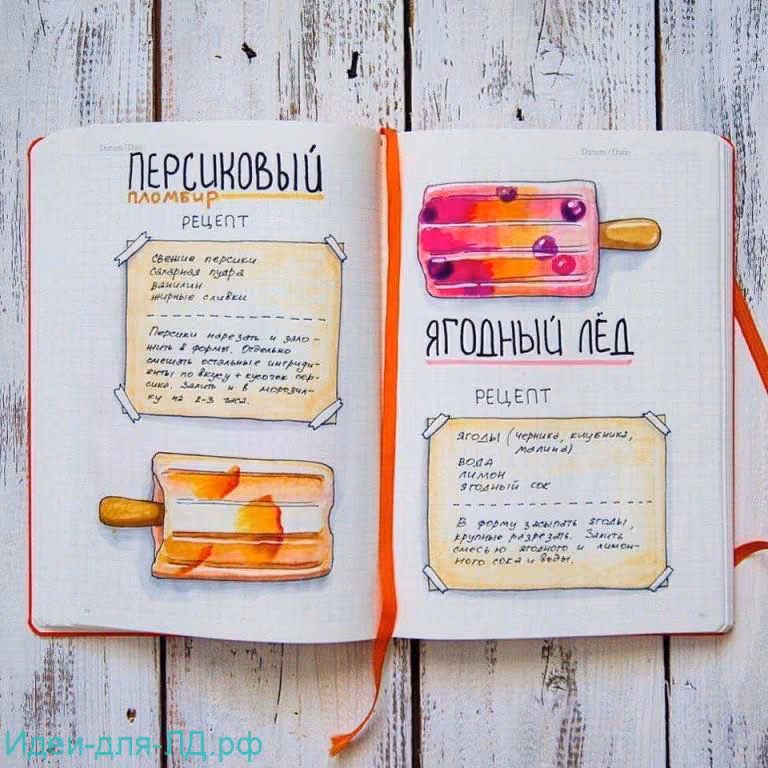 Datum / Date
ПЕРСИКОВЫЙ
пломбир
РЕЦЕПТ
свежие персики
сахарная пудра
ванилин
жирные сливки
Персики нарезать и зало-
жить в формы. Отдельно
смешать остальные ингриди-
енты по вкусу + кусочек пер-
сика. Залить и в морозил-
ку на 2-3 часа.
Datum / Date
ЯГОДНЫЙ ЛЁД
РЕЦЕПТ
ягоды (черника, клубника,
малина)
вода
лимон
ягодный сок
В форму засыпать ягоды,
крупные разрезать. Залить
смесью ягодного и лимон-
ного сока и воды.
Идеи-для-ЛД.рф